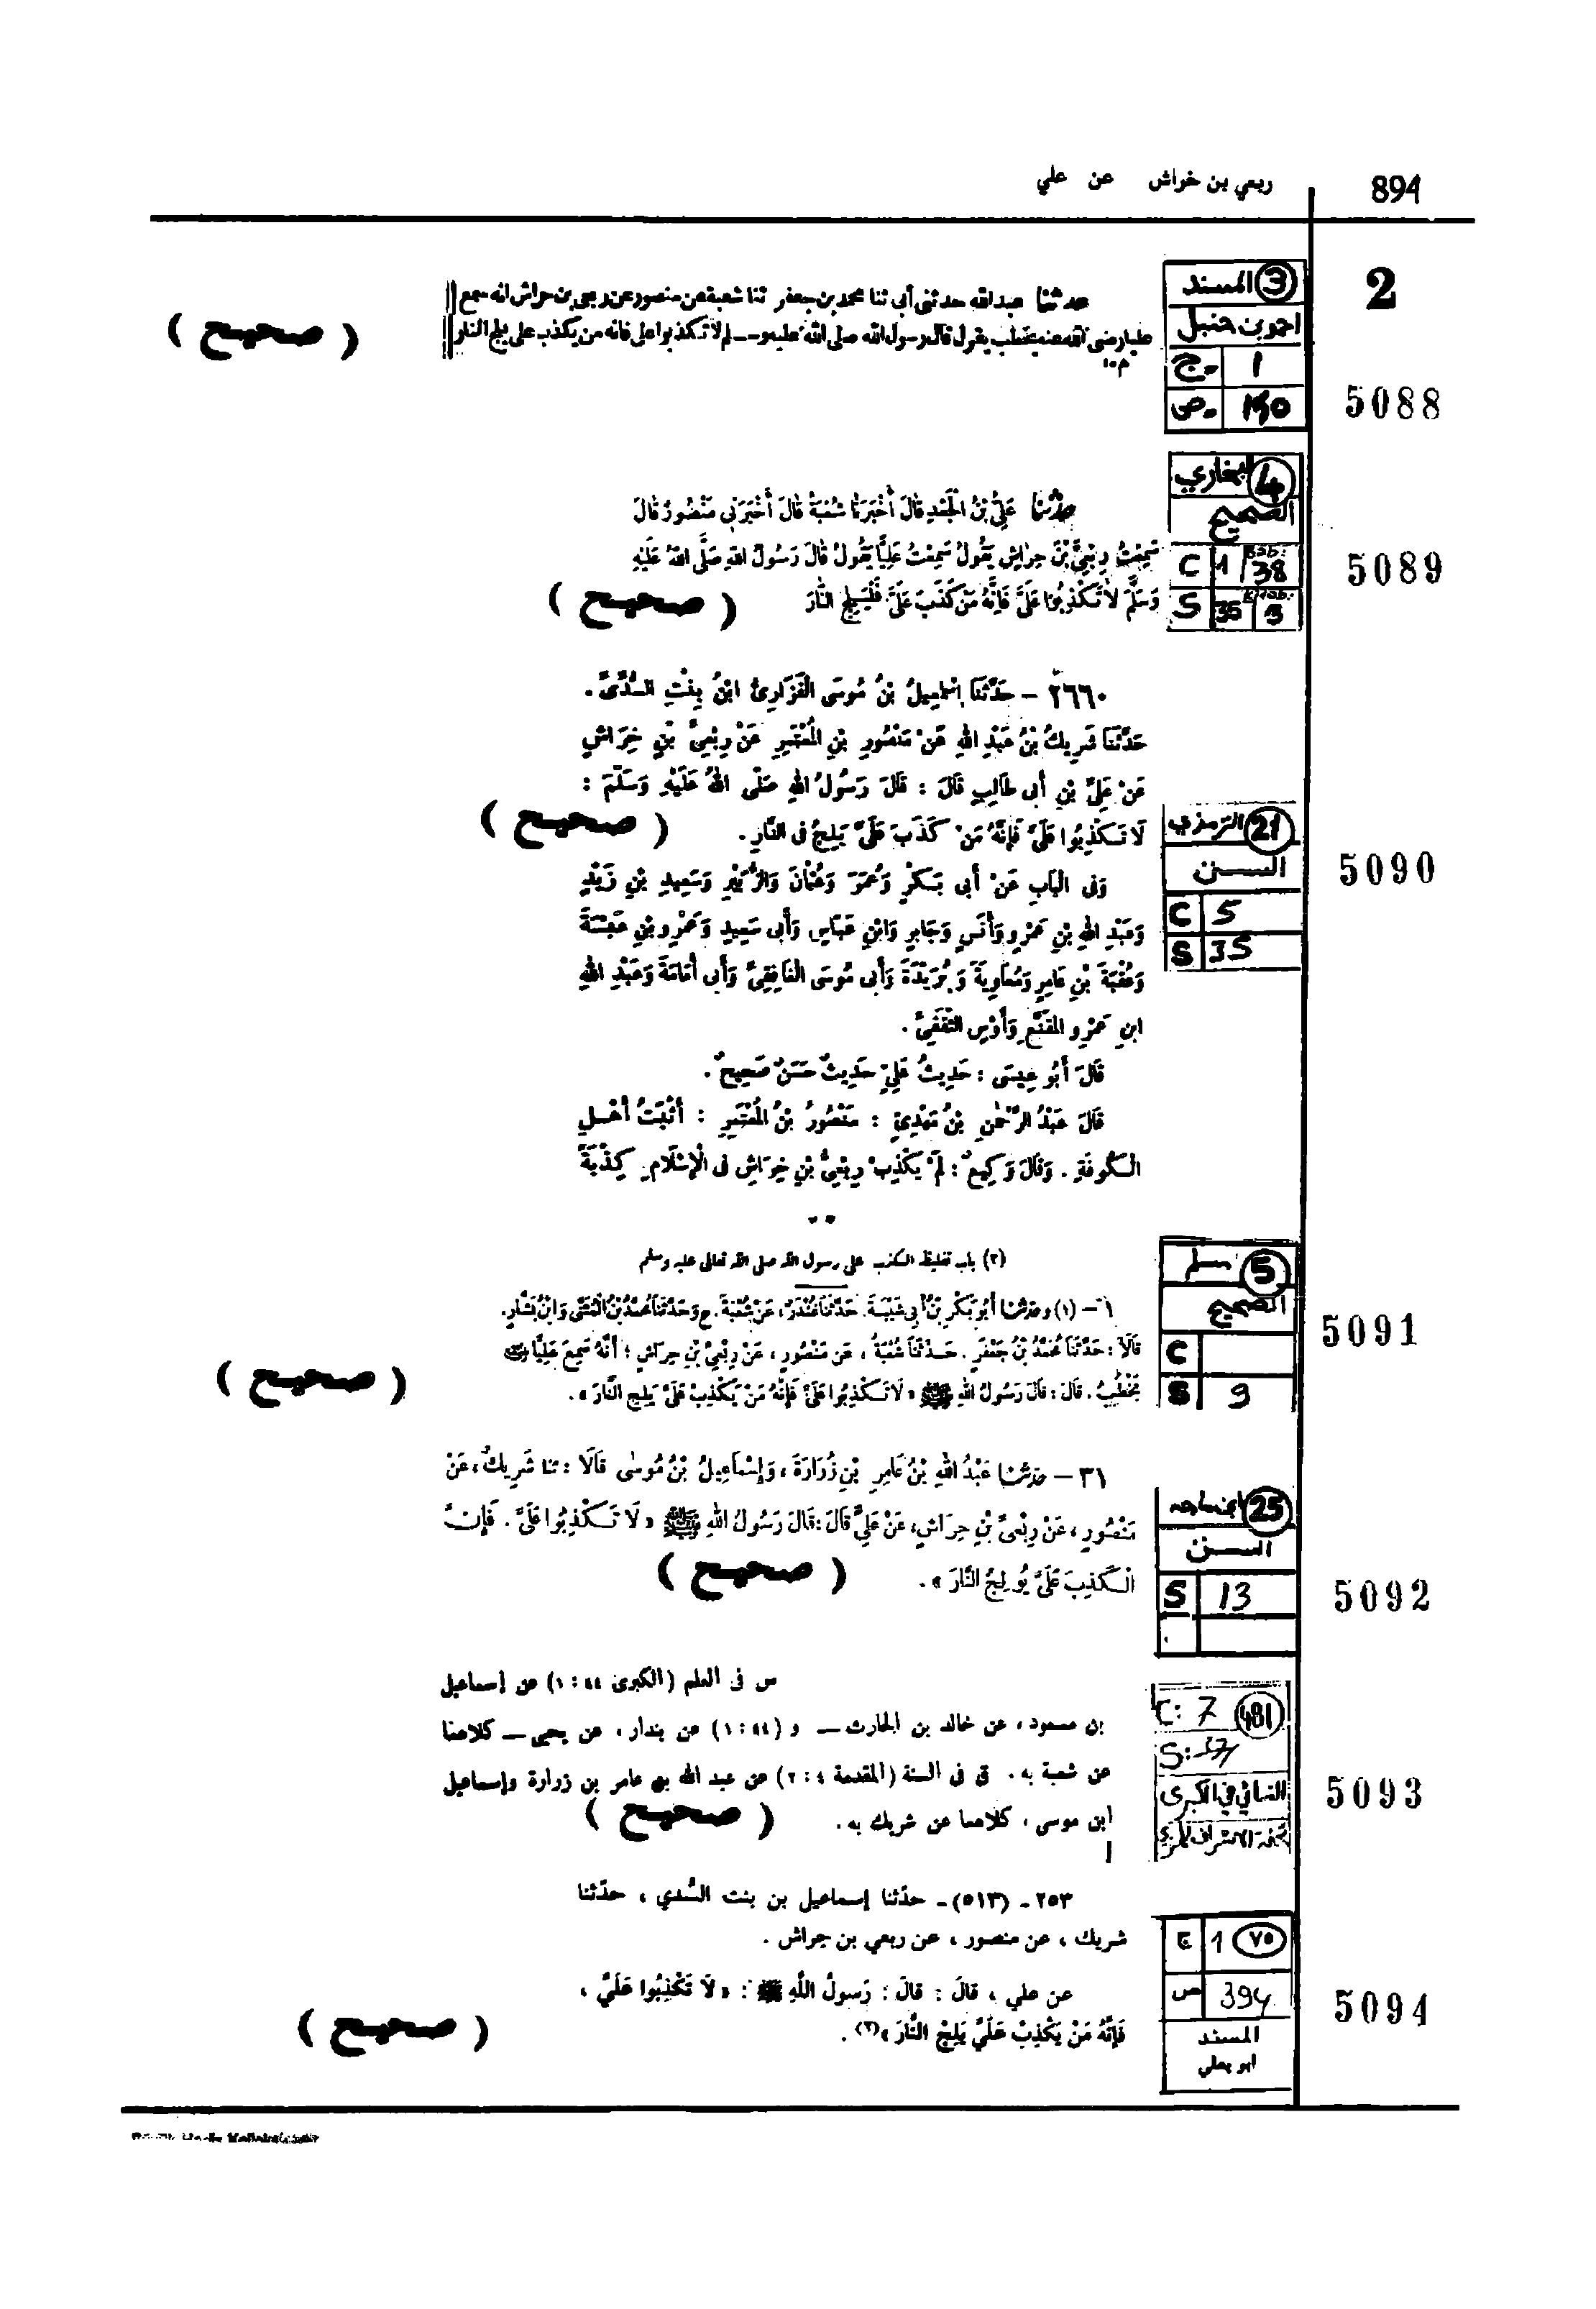 894
ربعي بن خواش عن علي
2
3 المسند
احمد بن حنبل
ج. 1
ص. 150
5088
حدثنا عبدالله حدثنى أبى ثنا محمد بن جعفر ثنا شعبة عن منصور عن ربعى بن حراش انه سمع
عليا رضى الله عنه يخطب يقول قال رسول الله صلى الله عليه وسلم لا تكذبوا على فانه من يكذب على يلج النار
( صحيح )
4 البخاري
الصحيح
C 1 Bab: 38
S 35 3
5089
حدثنا عَلِيُّ بْنُ الْجَعْدِ قَالَ أَخْبَرَنَا شُعْبَةُ قَالَ أَخْبَرَنِي مَنْصُورٌ قَالَ
سَمِعْتُ رِبْعِيَّ بْنَ حِرَاشٍ يَقُولُ سَمِعْتُ عَلِيًّا يَقُولُ قَالَ رَسُولُ اللهِ صَلَّى اللهُ عَلَيْهِ
وَسَلَّمَ لَا تَكْذِبُوا عَلَيَّ فَإِنَّهُ مَنْ كَذَبَ عَلَيَّ فَلْيَلِجِ النَّارَ
( صحيح )
٢٦٦٠ – حَدَّثَنَا إِسْمَاعِيلُ بْنُ مُوسَى الْفَزَارِىُّ ابْنُ بِنْتِ السُّدِّىِّ .
حَدَّثَنَا شَرِيكُ بْنُ عَبْدِ اللهِ عَنْ مَنْصُورِ بْنِ الْمُعْتَمِرِ عَنْ رِبْعِىِّ بْنِ خِرَاشٍ
عَنْ عَلِىِّ بْنِ أَبى طَالِبٍ قَالَ : قَالَ رَسُولُ اللهِ صَلَّى اللهُ عَلَيْهِ وَسَلَّمَ :
لَا تَكْذِبُوا عَلَىَّ فَإِنَّهُ مَنْ كَذَبَ عَلَىَّ يَلِجُ فى النَّارِ .
( صحيح )
21 الترمذي
السنن
C 5
S 35
5090
وَفى الْبَابِ عَنْ أَبى بَكْرٍ وَعُمَرَ وَعُثْمَانَ وَالزُّبَيْرِ وَسَعِيدِ بْنِ زَيْدٍ
وَعَبْدِ اللهِ بْنِ عَمْرٍو وَأَنَسٍ وَجَابِرٍ وَابْنِ عَبَّاسٍ وَأَبى سَعِيدٍ وَعَمْرِو بْنِ عَبْسَةَ
وَعُقْبَةَ بْنِ عَامِرٍ وَمُعَاوِيَةَ وَبُرَيْدَةَ وَأَبى مُوسَى الْغَافِقِىِّ وَأَبى أُمَامَةَ وَعَبْدِ اللهِ
ابنِ عَمْرٍو الْمُقَنَّعِ وَأَوْسٍ الثَّقَفِىِّ .
قَالَ أَبُو عِيسَى : حَدِيثُ عَلِىٍّ حَدِيثٌ حَسَنٌ صَحِيحٌ .
قَالَ عَبْدُ الرَّحْمٰنِ بْنُ مَهْدِىٍّ : مَنْصُورُ بْنُ الْمُعْتَمِرِ : أَثْبَتُ أَهْلِ
الْكُوفَةِ . وَقَالَ وَكِيعٌ : لَمْ يَكْذِبْ رِبْعِىُّ بْنِ خِرَاشٍ فى الْإِسْلَامِ كِذْبَةً
(٢) باب تغليظ الكذب على رسول الله صلى الله تعالى عليه وسلم
5 مسلم
الصحيح
C
S 9
5091
١ – (١) وحدثنا أَبُو بَكْرِ بْنُ أَبِى شَيْبَةَ. حَدَّثَنَا غُنْدَرٌ، عَنْ شُعْبَةَ. ح وَحَدَّثَنَا مُحَمَّدُ بْنُ الْمُثَنَّى وَابْنُ بَشَّارٍ.
قَالَا: حَدَّثَنَا مُحَمَّدُ بْنُ جَعْفَرٍ. حَدَّثَنَا شُعْبَةُ ، عَنْ مَنْصُورٍ ، عَنْ رِبْعِىِّ بْنِ حِرَاشٍ ؛ أَنَّهُ سَمِعَ عَلِيًّا
يَخْطُبُ . قَالَ: قَالَ رَسُولُ اللهِ ﷺ « لَا تَكْذِبُوا عَلَىَّ فَإِنَّهُ مَنْ يَكْذِبْ عَلَىَّ يَلِجِ النَّارَ » .
( صحيح )
٣١ – حدثنا عَبْدُ اللهِ بْنُ عَامِرِ بْنِ زُرَارَةَ ، وَإِسْمَاعِيلُ بْنُ مُوسٰى قَالَا : ثنا شَرِيكٌ، عَنْ
مَنْصُورٍ ، عَنْ رِبْعىِّ بْنِ حِرَاشٍ، عَنْ عَلِىٍّ قَالَ: قَالَ رَسُولُ اللهِ ﷺ « لَا تَكْذِبُوا عَلَىَّ . فَإِنَّ
الْكَذِبَ عَلَىَّ يُولِجُ النَّارَ » .
( صحيح )
25 ابن ماجه
السنن
S 13
5092
س فى العلم (الكبرى ٤٤ : ١) عن إسماعيل
بن مسعود ، عن خالد بن الحارث – و (٤٤ : ١) عن بندار ، عن يحيى – كلاهما
عن شعبة به . ق فى السنة (المقدمة ٤ : ٢) عن عبد الله بن عامر بن زرارة وإسماعيل
ابن موسى ، كلاهما عن شريك به .
( صحيح )
481 C: 7
S: 37
النسائي في الكبرى
تحفة الاشراف
5093
٢٥٣ - (٥١٣) - حدّثنا إسماعيل بن بنت السُّدي ، حدّثنا
شريك ، عن منصور ، عن ربعي بن حراش .
عن علي ، قَالَ : قَالَ : رَسُولُ اللَّهِ ﷺ : « لاَ تَكْذِبُوا عَلَيَّ ،
فَإِنَّهُ مَنْ يَكْذِبْ عَلَيَّ يَلِجْ النَّارَ »(٢) .
( صحيح )
ج 1 ٧٥
ص 394
المسند
ابو يعلي
5094